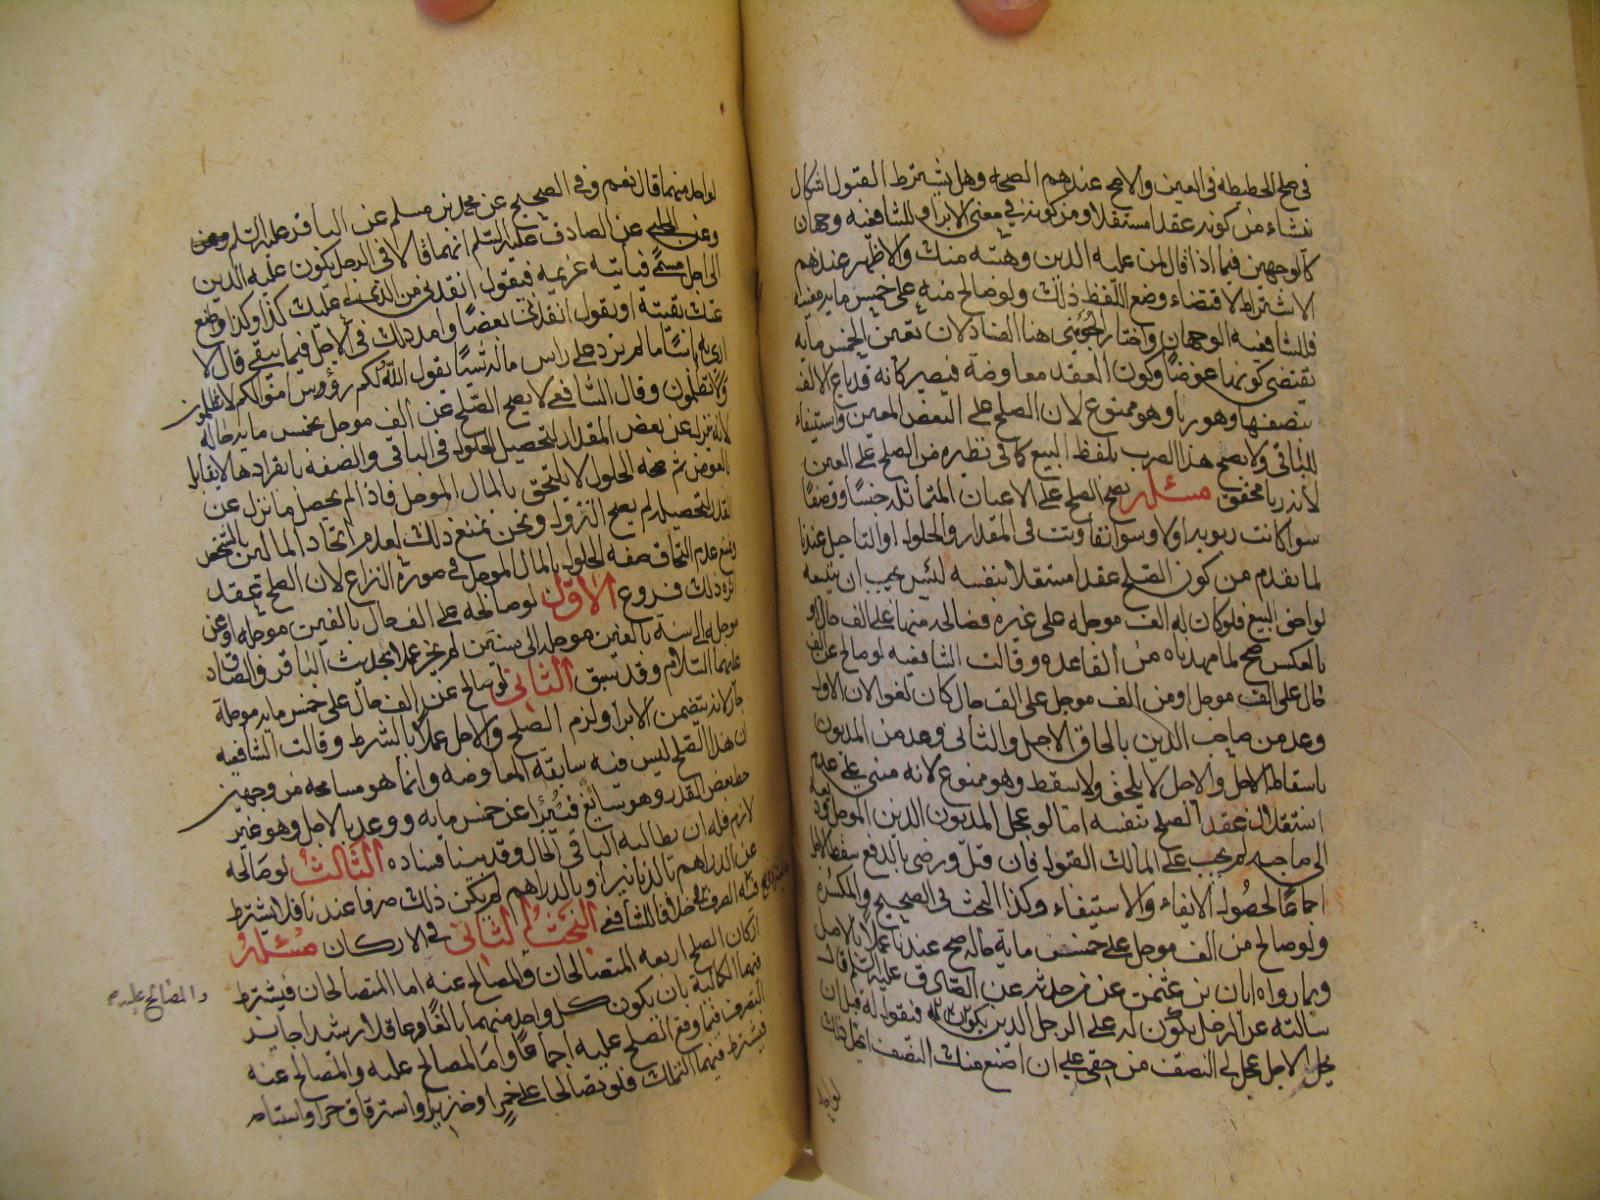 في صلح الحطيطه في العين والاصح عندهم الصحه وهل يشترط القبول اشكال
ينشاء من كونه عقدا مستقلا ومن كونه في معنى الابراء وللشافعيه وجهان
كالوجهين فيما اذا قال لمن عليه الدين وهبته منك والاظهر عندهم
الاشتراط لاقتضاء وضع اللفظ ذلك ولو صالح منه على خمس مايه معينه
فللشافعيه الوجهان واختار الجويني هنا الفساد لان تعين الخمس مايه
يقتضى كونها عوضا وكون العقد معاوضة فيصير كانه قد باع الالف
بنصفها وهو ربا وهو ممنوع لان الصلح على البعض المعين واستيفاء
للباقي ولا يصح هذا الضرب بلفظ البيع كما في نظيره من الصلح على العين
لانه ربا محقق مسئلة يصح الصلح على الاعيان المتماثله جنسا ووصفا
سوا كانت ربويه اولا وسوا تفاوتت في المقدار والحلول او التاجيل عندنا
لما تقدم من كون الصلح عقدا مستقلا بنفسه ليس يجب ان يتبعه
لواحق البيع فلو كان له الف موجله على غيره فصالحه منها على الف حال او
بالعكس صح لما مهدناه من القاعده وقالت الشافعيه لو صالح عن الف
حال على الف موجل او من الف موجل على الف حال كان لغوا لان الاول
وعد من صاحب الدين بالحاق الاجل والثاني وعد من المديون
باسقاط الاجل والاجل لا يلحق ولا يسقط وهو ممنوع لانه مبني على عدم
استقلال عقد الصلح بنفسه اما لو عجل المديون الدين الموجل
الى صاحبه لم يجب على المالك القبول فان قبل ورضى بالدفع سقط الاجل
اجماعا لحصول الايفاء والاستيفاء وكذا البحث في الصحيح والمكسره
ولو صالح من الف موجل على خمس مايه حاله صح عندنا عملا بالاصل
وبما رواه ابان بن عثمن عن من حدثه عن الصادق عليه السلم قال
سالته عن الرجل يكون له على الرجل الدين فيقول له قبل ان
يحل الاجل عجل لي النصف من حقي على ان اضع عنك النصف ايحل ذلك
لواحد
لواحد منهما قال نعم وفي الصحيح عن محمد بن مسلم عن الباقر عليه السلم
وعن الحلبي عن الصادق عليه السلم انهما قالا في الرجل يكون عليه الدين
الى اجل مسمى فياتيه غريمه فيقول انقدني من الذي لي عليك كذا وكذا واضع
عنك بقيته او يقول انقدني بعضا وامد لك في الاجل فيما بقي قال لا
ارى به باسا ما لم يزد على راس ماله شيئا يقول الله لكم رؤوس اموالكم لا تظلمون
ولا تظلمون وقال الشافعي لا يصح الصلح عن الف موجل بخمس مايه حاله
لانه نزل عن بعض المقدار لتحصيل الحلول في الباقي والصفه بانفرادها لا يقابل
بالعوض ثم صفه الحلول لا يلتحق بالمال الموجل فاذا لم يحصل ما نزل عن
القدر لتحصيله لم يصح النزول ونحن نمنع ذلك لعدم اتحاد المالين بالشخص
ونمنع عدم التحاق صفه الحلول بالمال الموجل في صورة النزاع لان الصلح عقد
ذلك فروع الاول لو صالحه على الف حال بالفين موجله او عن
موجله الى سنة بالفين موجله الى سنتين لم يجز عملا بحديث الباقر والصادق
عليهما السلام وقد سبق الثاني لو صالح عن الف حال على خمس مايه موجلة
لانه يتضمن الابرا ولزم الصلح والاجل عملا بالشرط وقالت الشافعيه
ان هذا الصلح ليس فيه سابقه المعاوضه وانما هو مسامحه من وجهين
حط بعض القدر وهو سائغ فيبرأ عن خمس مايه ووعد بالاجل وهو غير
لازم فله ان يطالبه الباقي في الحال وقد بينا فساده الثالث لو صالحه
عن الدراهم بالدنانير او بالدراهم لم يكن ذلك صرفا عندنا فلا يشترط
فيه الصرف خلافا للشافعي البحث الثاني في الاركان مسئله
اركان الصلح اربعه المتصالحان والمصالح عنه اما المتصالحان فيشترط
والمصالح عليه
فيهما الكمالية بان يكون كل واحد منهما بالغا وعاقلا رشيدا جايز
التصرف فيما وقع الصلح عليه اجماعا واما المصالح عليه والمصالح عنه
فيشترط فيهما التملك فلو تصالحا على خمر او خنزير او استرقاق حر او استباحه